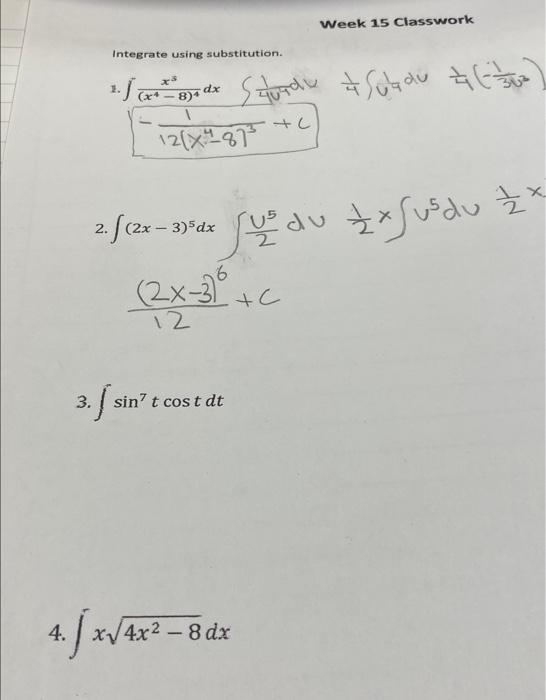 Week 15 Classwork
Integrate using substitution.
1. ∫ x³/(x⁴ − 8)⁴ dx ∫ 1/4u⁴ du 1/4 ∫ 1/u⁴ du 1/4 (−1/3u³)
− 1/12(x⁴−8)³ + C
2. ∫ (2x − 3)⁵ dx ∫ u⁵/2 du 1/2 × ∫ u⁵ du 1/2 ×
(2x−3)⁶/12 + C
3. ∫ sin⁷ t cos t dt
4. ∫ x√(4x² − 8) dx